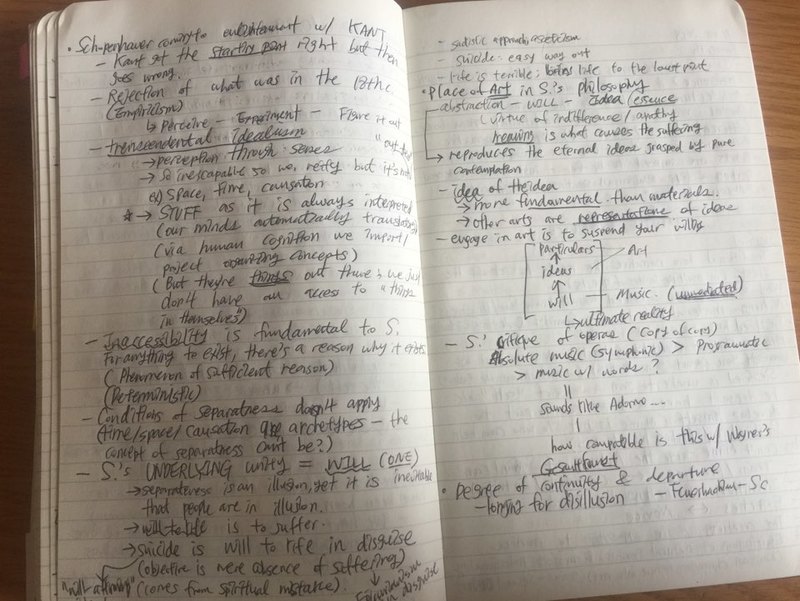 • Schopenhauer coming to enlightenment w/ KANT
- Kant set the starting point right but then
goes wrong.
- Rejection of what was in the 18thc
(Empiricism)
↳ Perceive - Experiment - Figure it out
- transcendental idealism "out there"
→ perception through senses
→ So inescapable so we reify but it's not
ex) space, time, causation
* → STUFF as it is always interpreted
(our minds automatically translate)
(via human cognition we import/
project organizing concepts)
(But they're things out there; we just
don't have an access to "things
in themselves")
- Inaccessibility is fundamental to S.
For anything to exist, there's a reason why it exists
(Phenomenon of sufficient reason)
(Deterministic)
- Conditions of separatness doesn't apply
(time/space/causation archetypes - the
concept of separatness can't be?)
- S.'s UNDERLYING unity = WILL (ONE)
→ separateness is an illusion, yet it is inevitable
that people are in illusion.
→ will to life is to suffer.
→ suicide is will to life in disguise
(objective is mere absence of suffering)
"will affirming" (comes from spiritual mistake)
Epicureanism
in disguise
- sadistic approach, asceticism
- suicide: easy way out
- life is terrible; life to the lowest part
• place of Art in S.'s philosophy
abstraction - WILL - Idea (essence)
(virtue of indifference/apathy
is what causes the suffering
→ reproduces the eternal ideas grasped by pure
contemplation
- idea of the idea
→ more fundamental than materials.
→ other arts are representations of ideas
- engage in art is to suspend your willing
particulars
↑ Art
ideas
↑
will - Music. (unmediated)
↳ ultimate reality
- S.' critique of operas (copy of copy)
Absolute music (symphonic) > Programmatic
> music w/ words?
||
sounds like Adorno....
|
how compatible is this w/ Wagner's
Gesamtkunst
• Degree of continuity & departure
- longing for disillusion - Feuerbachian - Sc